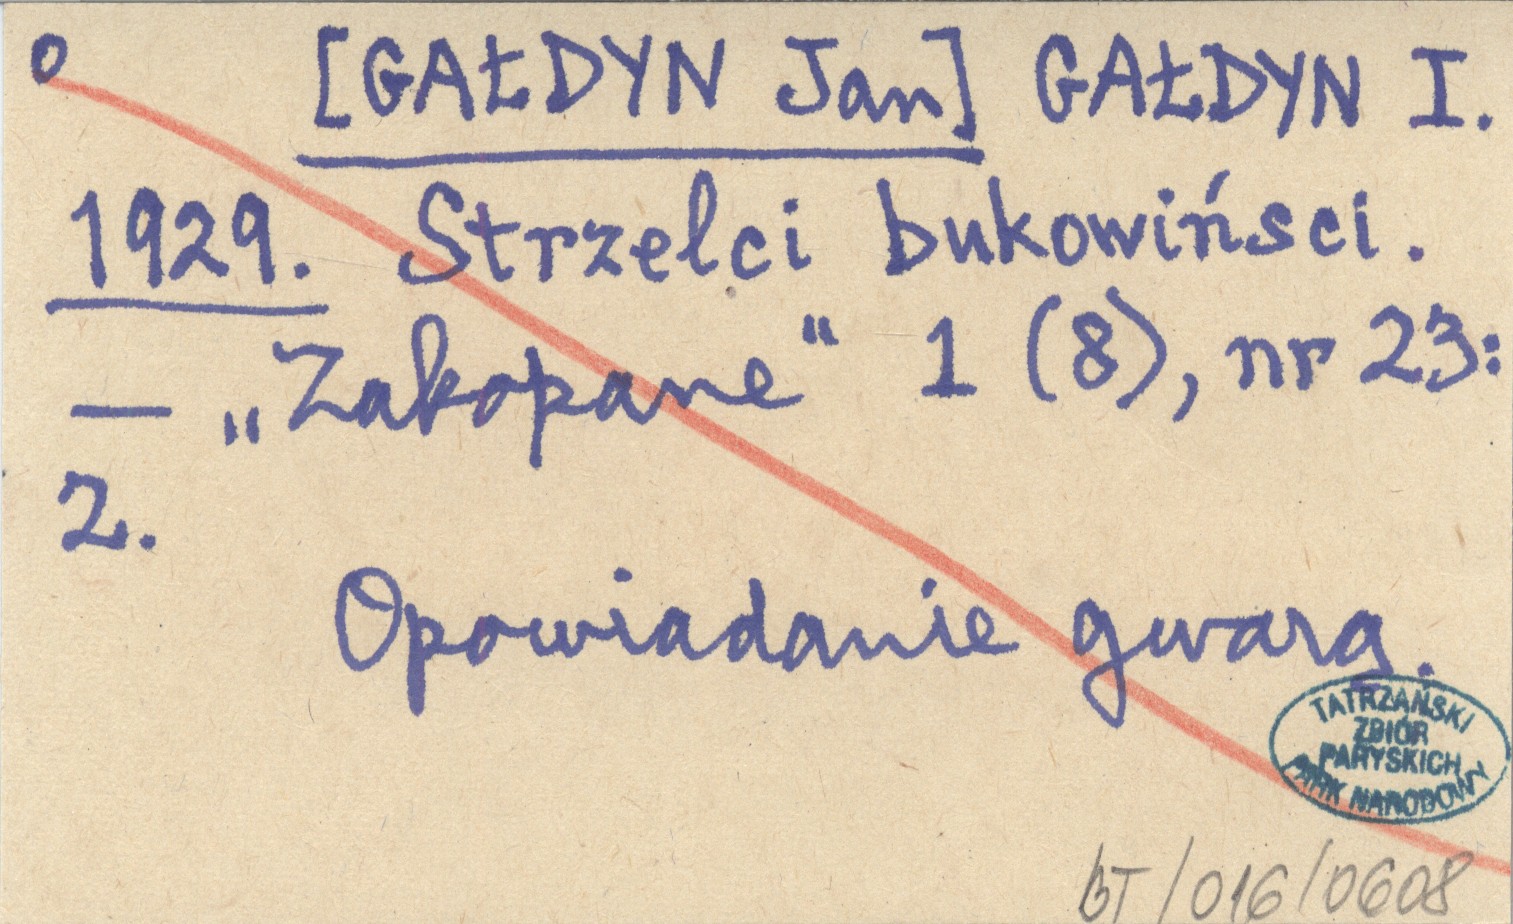 o [GAŁDYN Jan] GAŁDYN I.
1929. Strzelci bukowińsci.
— „Zakopane" 1 (8), nr 23:
2.
Opowiadanie gwarą.
TATRZAŃSKI
ZBIÓR
PARYSKICH
PARK NARODOWY
BT/016/0608